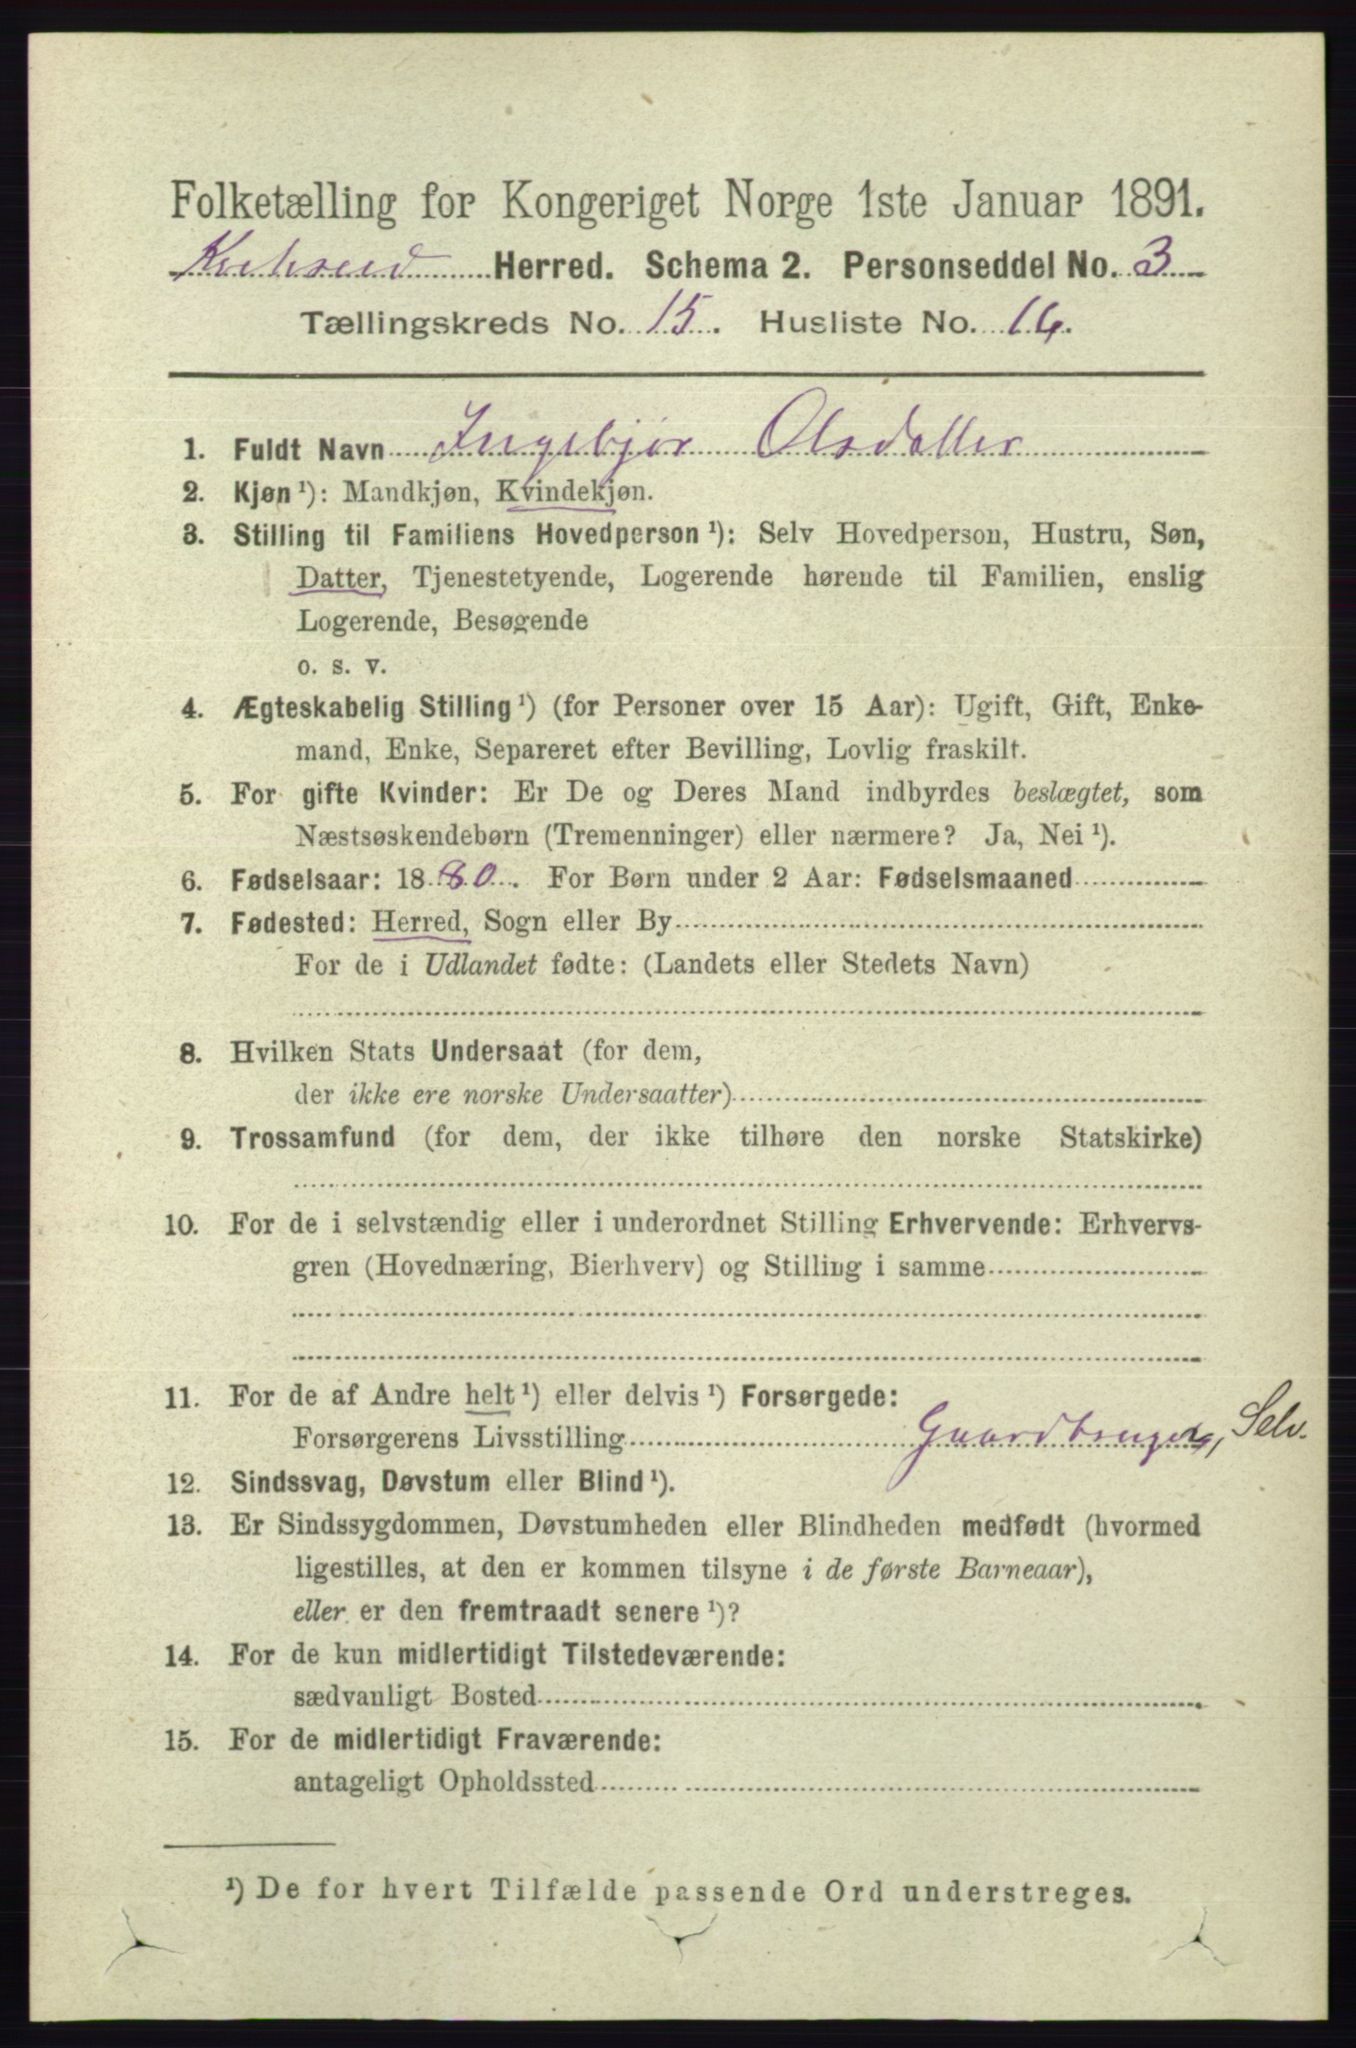 Folketælling for Kongeriget Norge 1ste Januar 1891.
Herred. Schema 2. Personseddel No. 3
Tællingskreds No. 15. Husliste No. 16.
1. Fuldt Navn Ingebjør Olsdatter
2. Kjøn ¹): Mandkjøn, Kvindekjøn.
3. Stilling til Familiens Hovedperson ¹): Selv Hovedperson, Hustru, Søn,
Datter, Tjenestetyende, Logerende hørende til Familien, enslig
Logerende, Besøgende
o. s. v.
4. Ægteskabelig Stilling ¹) (for Personer over 15 Aar): Ugift, Gift, Enke-
mand, Enke, Separeret efter Bevilling, Lovlig fraskilt.
5. For gifte Kvinder: Er De og Deres Mand indbyrdes beslægtet, som
Næstsøskendebørn (Tremenninger) eller nærmere? Ja, Nei ¹).
6. Fødselsaar: 1880. For Børn under 2 Aar: Fødselsmaaned
7. Fødested: Herred, Sogn eller By
For de i Udlandet fødte: (Landets eller Stedets Navn)
8. Hvilken Stats Undersaat (for dem,
der ikke ere norske Undersaatter)
9. Trossamfund (for dem, der ikke tilhøre den norske Statskirke)
10. For de i selvstændig eller i underordnet Stilling Erhvervende: Erhvervs-
gren (Hovednæring, Bierhverv) og Stilling i samme
11. For de af Andre helt ¹) eller delvis ¹) Forsørgede:
Forsørgerens Livsstilling Gaardbruger, Selv.
12. Sindssvag, Døvstum eller Blind ¹).
13. Er Sindssygdommen, Døvstumheden eller Blindheden medfødt (hvormed
ligestilles, at den er kommen tilsyne i de første Barneaar),
eller er den fremtraadt senere ¹)?
14. For de kun midlertidigt Tilstedeværende:
sædvanligt Bosted
15. For de midlertidigt Fraværende:
antageligt Opholdssted
¹) De for hvert Tilfælde passende Ord understreges.